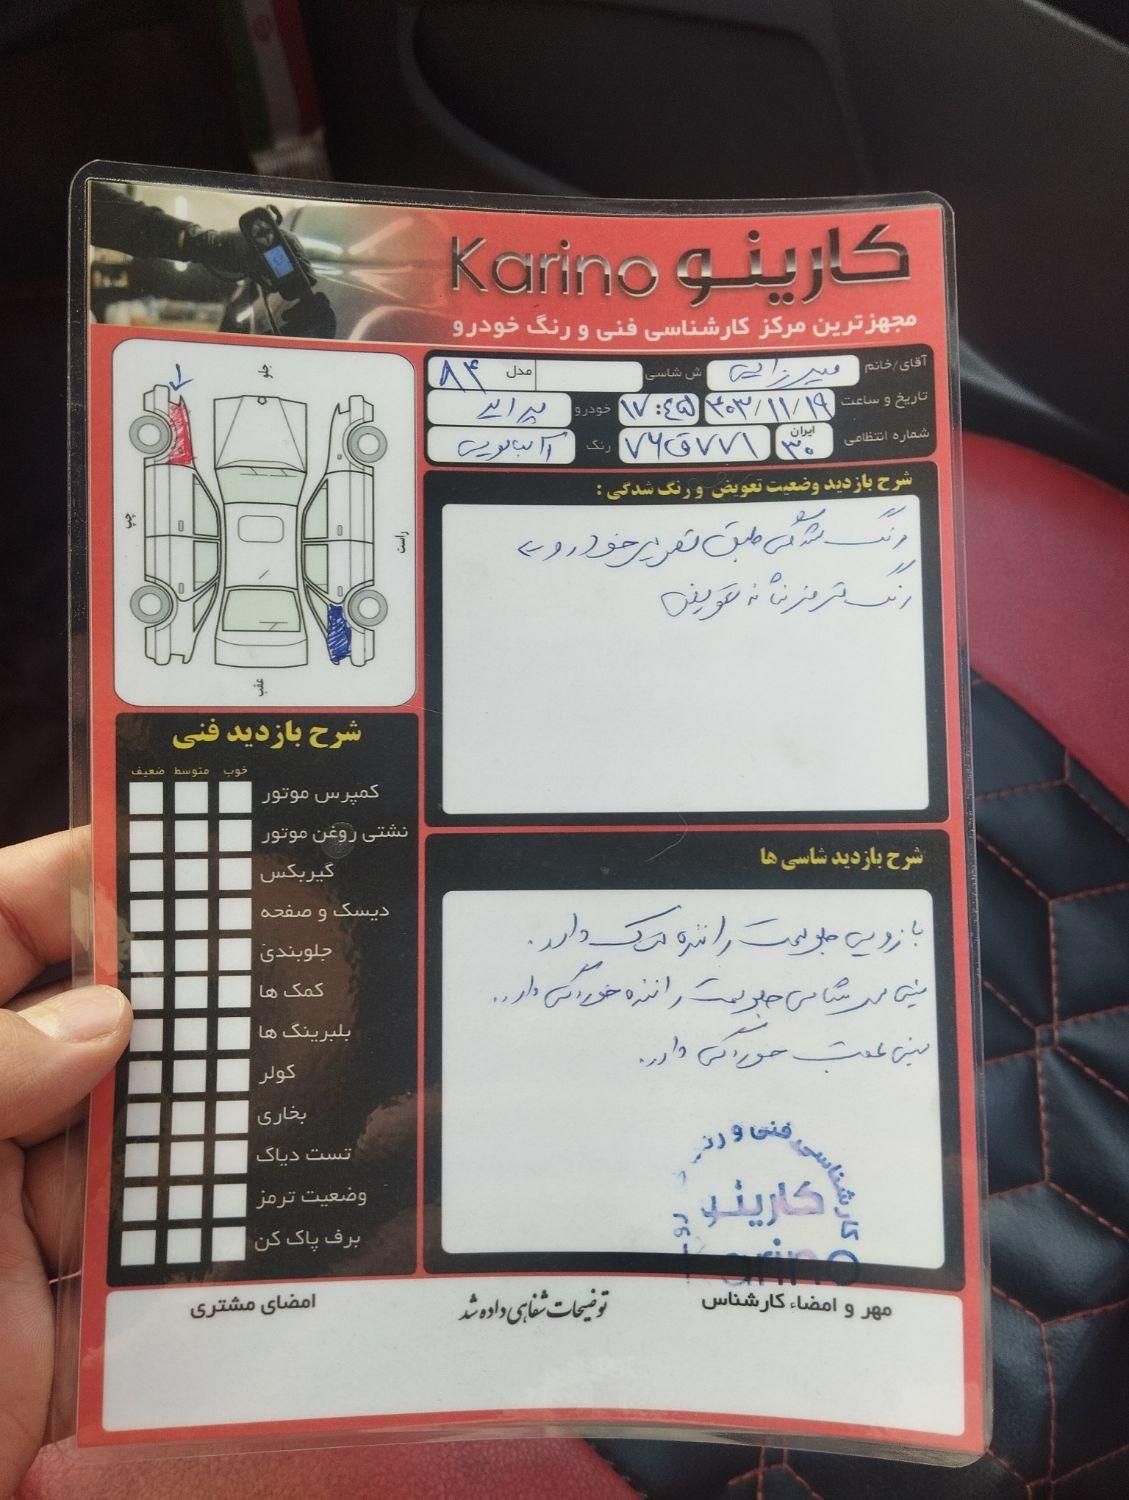 کارینو Karino
مجهزترین مرکز کارشناسی فنی و رنگ خودرو
آقای/خانم میرزایی ش شاسی مدل ۸۴
تاریخ و ساعت ۴۰۳/۱۱/۱۹ ۱۷:۴۵ خودرو پراید
شماره انتظامی ایران ۳۰ ۷۷۱ق۷۶ رنگ آلبالویی
جلو
چپ
راست
عقب
شرح بازدید وضعیت تعویض و رنگ شدگی :
رنگ شدگی طبق تصویر خودرو
رنگ قرمز نشانه تعویض
شرح بازدید فنی
خوب متوسط ضعیف
کمپرس موتور
نشتی روغن موتور
گیربکس
دیسک و صفحه
جلوبندی
کمک ها
بلبرینگ ها
کولر
بخاری
تست دیاگ
وضعیت ترمز
برف پاک کن
شرح بازدید شاسی ها
بازویی جلو سمت راننده ترک دارد.
سینی سر شاسی جلو سمت راننده خوردگی دارد.
سینی عقب خوردگی دارد.
کارشناسی فنی و رنگ
کارینو
Karino
مهر و امضاء کارشناس
توضیحات شفاهی داده شد
امضای مشتری